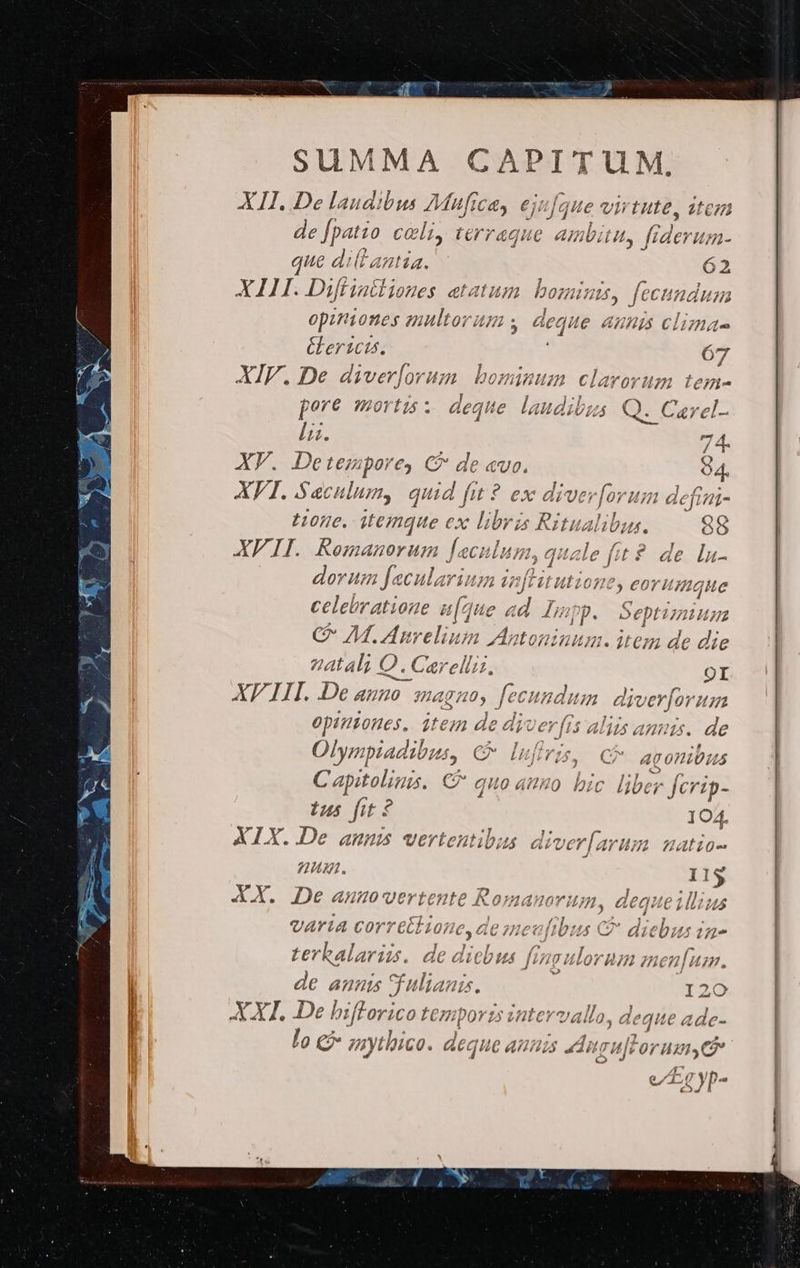 SUMMA CAPITUM.
XII. De laudibus Muſicæ, ejuſque virtute, item
de ſpatio cœli, terræque ambitu, ſiderum-
que diſtantia. 62
XIII. Diſtinctiones ætatum hominis, ſecundum
opiniones multorum ; deque annis clima-
ctericis. 67
XIV. De diverſorum hominum clarorum tem-
pore mortis: deque laudibus Q. Cærel-
lii. 74
XV. De tempore, & de ævo. 84
XVI. Sæculum, quid ſit? ex diverſorum defini-
tione. itemque ex libris Ritualibus. 88
XVII. Romanorum ſæculum, quale ſit? de lu-
dorum ſæcularium inſtitutione, eorumque
celebratione uſque ad Impp. Septimium
& M. Aurelium Antoninum. item de die
natali Q. Cærellii. 91
XVIII. De anno magno, ſecundum diverſorum
opiniones. item de diverſis aliis annis. de
Olympiadibus, & luſtris, & agonibus
Capitolinis. & quo anno hic liber ſcrip-
tus ſit? 104
XIX. De annis vertentibus diverſarum natio-
num. 115
XX. De anno vertente Romanorum, deque illius
varia correctione, de menſibus & diebus in-
terkalariis. de diebus ſingulorum menſum.
de annis Julianis. 120
XXI. De hiſtorico temporis intervallo, deque ade-
lo & mythico. deque annis Auguſtorum, &
Ægyp-